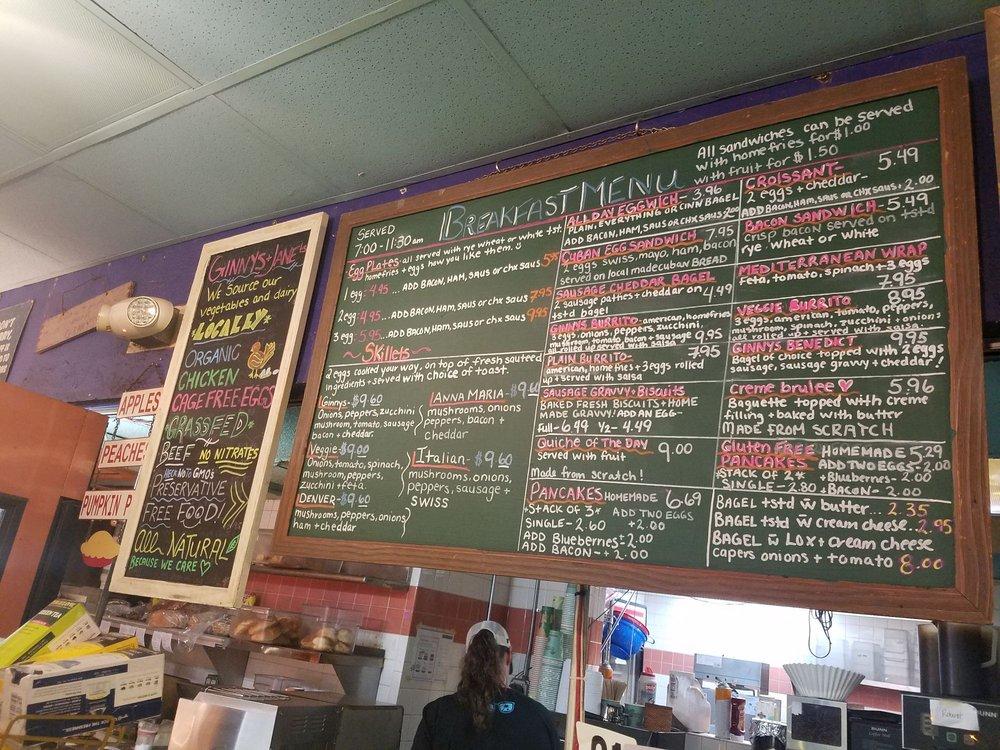 GINNYS-JANE'S
WE SOURCE our
vegetables and dairy
*LOCALLY*
ORGANIC
CHICKEN
CAGE FREE EGGS
GRASSFED
BEEF NO NITRATES
HECK NO TO GMO's
PRESERVATIVE
FREE FOOD!
All NATURAL
BECAUSE WE CARE ♡
APPLES
PEACHE
PUMPKIN P
BREAKFAST MENU
All sandwiches can be served
with home fries for $1.00
with fruit for $1.50
SERVED
7:00 - 11:30am
Egg Plates- all served with rye wheat or white tst.
homefries + eggs how you like them. :)
1 egg- 4.95 ... ADD BACON, HAM, SAUS or CHX SAUS
2 egg- 4.95 ... ADD BACON, HAM, SAUS or chx saus 7.95
3 egg- 5.95 ... ADD BACON, HAM, SAUS or chx saus 9.95
~Skillets~
2 eggs cooked your way, on top of fresh sauteed
ingredients + served with choice of toast.
Ginnys- $9.60
Onions, peppers, zucchini
mushroom, tomato, sausage
bacon + cheddar
Veggie- $9.00
Onions, tomato, spinach,
mushrooms, peppers,
zucchini + feta
DENVER- $9.60
mushrooms, peppers, onions
ham + cheddar
ANNA MARIA- $9.60
mushrooms, onions
peppers, bacon +
cheddar
Italian- $9.60
mushrooms, onions,
peppers, sausage +
SWISS
ALL DAY EGGWICH- 3.96
PLAIN, EVERYTHING OR CINN BAGEL
ADD BACON, HAM, SAUS OR CHX SAUS 2.00
CUBAN EGG SANDWICH 7.95
2 eggs swiss, mayo, ham, bacon
served on local made cuban BREAD
SAUSAGE CHEDDAR BAGEL
2 sausage patties + cheddar on 4.49
tstd bagel
GINNYS BURRITO- american, homefries
3 eggs, onions, peppers, zucchini,
mushroom, tomato, bacon + sausage 9.95
all rolled up + served with salsa
PLAIN BURRITO- 7.95
american, homefries + 3 eggs rolled
up + served with salsa
SAUSAGE GRAVY + BISCUITS
BAKED FRESH BISCUITS + HOME
MADE GRAVY! ADD AN EGG-
Full- 6.49 1/2 - 4.49
QUICHE OF THE DAY 9.00
served with fruit
Made from scratch!
PANCAKES HOMEMADE 6.69
*STACK OF 3* ADD TWO EGGS
SINGLE- 2.60 +2.00
ADD Blueberries + 2.00
ADD BACON- + 2.00
CROISSANT- 5.49
2 eggs + cheddar-
ADD BACON, HAM, SAUS OR CHX SAUS + 2.00
BACON SANDWICH- 5.49
crisp bacon served on tstd
rye wheat or white
MEDITERRANEAN WRAP
Feta, tomato, spinach + 3 eggs
7.95
VEGGIE BURRITO 8.95
3 eggs, american, tomato, peppers,
mushroom, spinach, zucchini + onion
all rolled up + served with salsa
GINNYS BENEDICT 9.95
Bagel of choice topped with 2 eggs
sausage, sausage gravy + cheddar!
Creme brulee ♡ 5.96
Baguette topped with creme
filling + baked with butter
MADE FROM SCRATCH
Gluten Free HOMEMADE 5.29
PANCAKES ADD TWO EGGS- 2.00
*STACK OF 2* +Blueberries- 2.00
SINGLE- 2.80 +BACON- 2.00
BAGEL tstd w butter... 2.35
BAGEL tstd w cream cheese.. 2.95
BAGEL w LOX + cream cheese
capers onions + tomato 8.00
BUNN